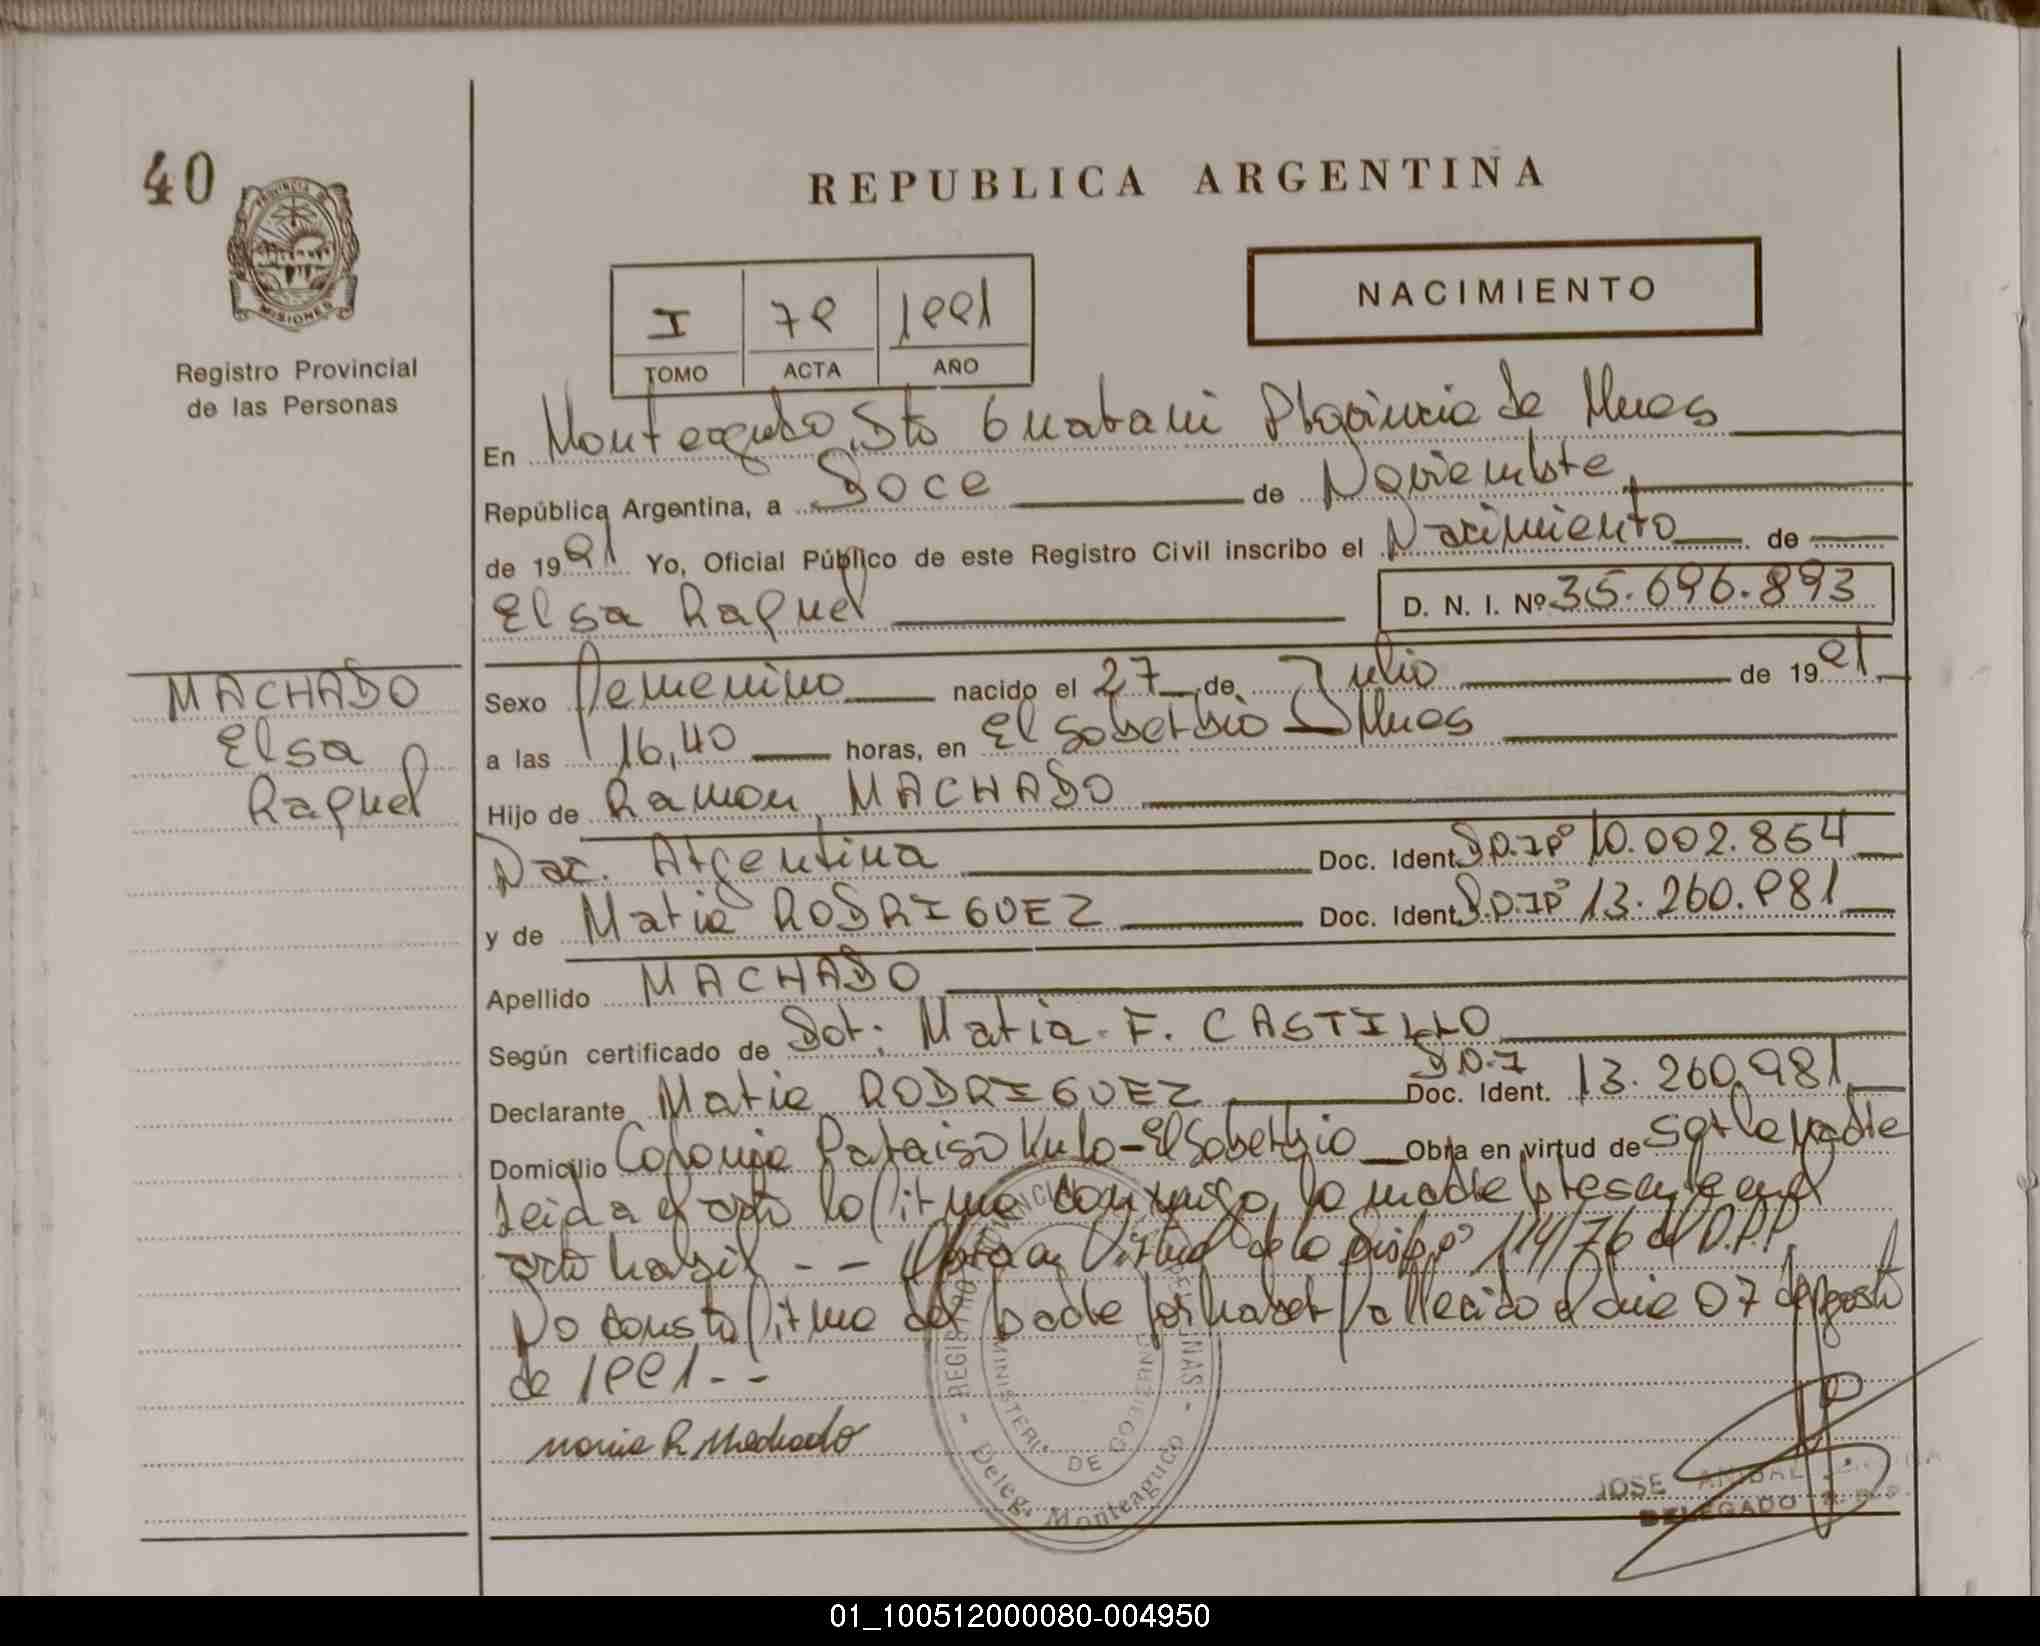 40
REPUBLICA ARGENTINA
NACIMIENTO
I 79 1991
TOMO ACTA AÑO
PROVINCIA DE MISIONES
Registro Provincial
de las Personas
En Monteagudo, Dto Guarani Provincia de Mnes
República Argentina, a Doce de Noviembre
de 1991 Yo, Oficial Público de este Registro Civil inscribo el Nacimiento de
Elsa Raquel D. N. I. Nº 35.696.893
MACHADO
Elsa
Raquel
Sexo Femenino nacido el 27 de Julio de 1991
a las 16,40 horas, en El Soberbio Mnes
Hijo de Ramon MACHADO
Nac. Argentina Doc. Ident. D.N.I Nº 10.002.864
y de Maria RODRIGUEZ Doc. Ident. D.N.I Nº 13.260.981
Apellido MACHADO
Según certificado de Dot: Maria F. CASTILLO
Declarante Maria RODRIGUEZ D.N.I Doc. Ident. 13.260.981
Domicilio Colonia Paraiso - El Soberbio Obra en virtud de ser la Madre
Leida el acta la firma conmigo, la madre presente en el
acto habil - - Obra en Virtud de la Disp. Nº 114/76 del D.P.P.
No consta firma del padre por haber fallecido el dia 07 de Agosto
de 1991 - -
Maria R Machado
REGISTRO PROVINCIAL
MINISTERIO DE GOBIERNO
Deleg. Monteagudo
JOSE ANIBAL
DELEGADO
01_100512000080-004950